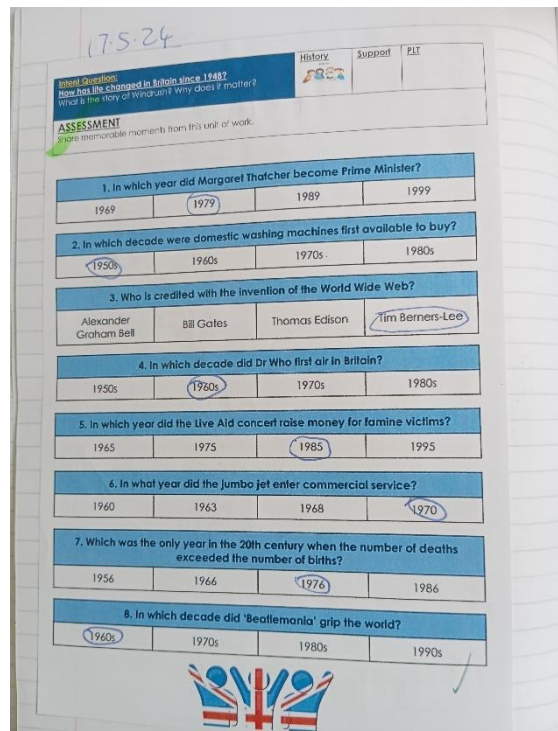 17.5.24
Intent Question:
How has life changed in Britain since 1948?
What is the story of Windrush? Why does it matter?
History
Support
PLT
ASSESSMENT
Share memorable moments from this unit of work.
1. In which year did Margaret Thatcher become Prime Minister?
1969 1979 1989 1999
2. In which decade were domestic washing machines first available to buy?
1950s 1960s 1970s 1980s
3. Who is credited with the invention of the World Wide Web?
Alexander Graham Bell Bill Gates Thomas Edison Tim Berners-Lee
4. In which decade did Dr Who first air in Britain?
1950s 1960s 1970s 1980s
5. In which year did the Live Aid concert raise money for famine victims?
1965 1975 1985 1995
6. In what year did the jumbo jet enter commercial service?
1960 1963 1968 1970
7. Which was the only year in the 20th century when the number of deaths
exceeded the number of births?
1956 1966 1976 1986
8. In which decade did 'Beatlemania' grip the world?
1960s 1970s 1980s 1990s